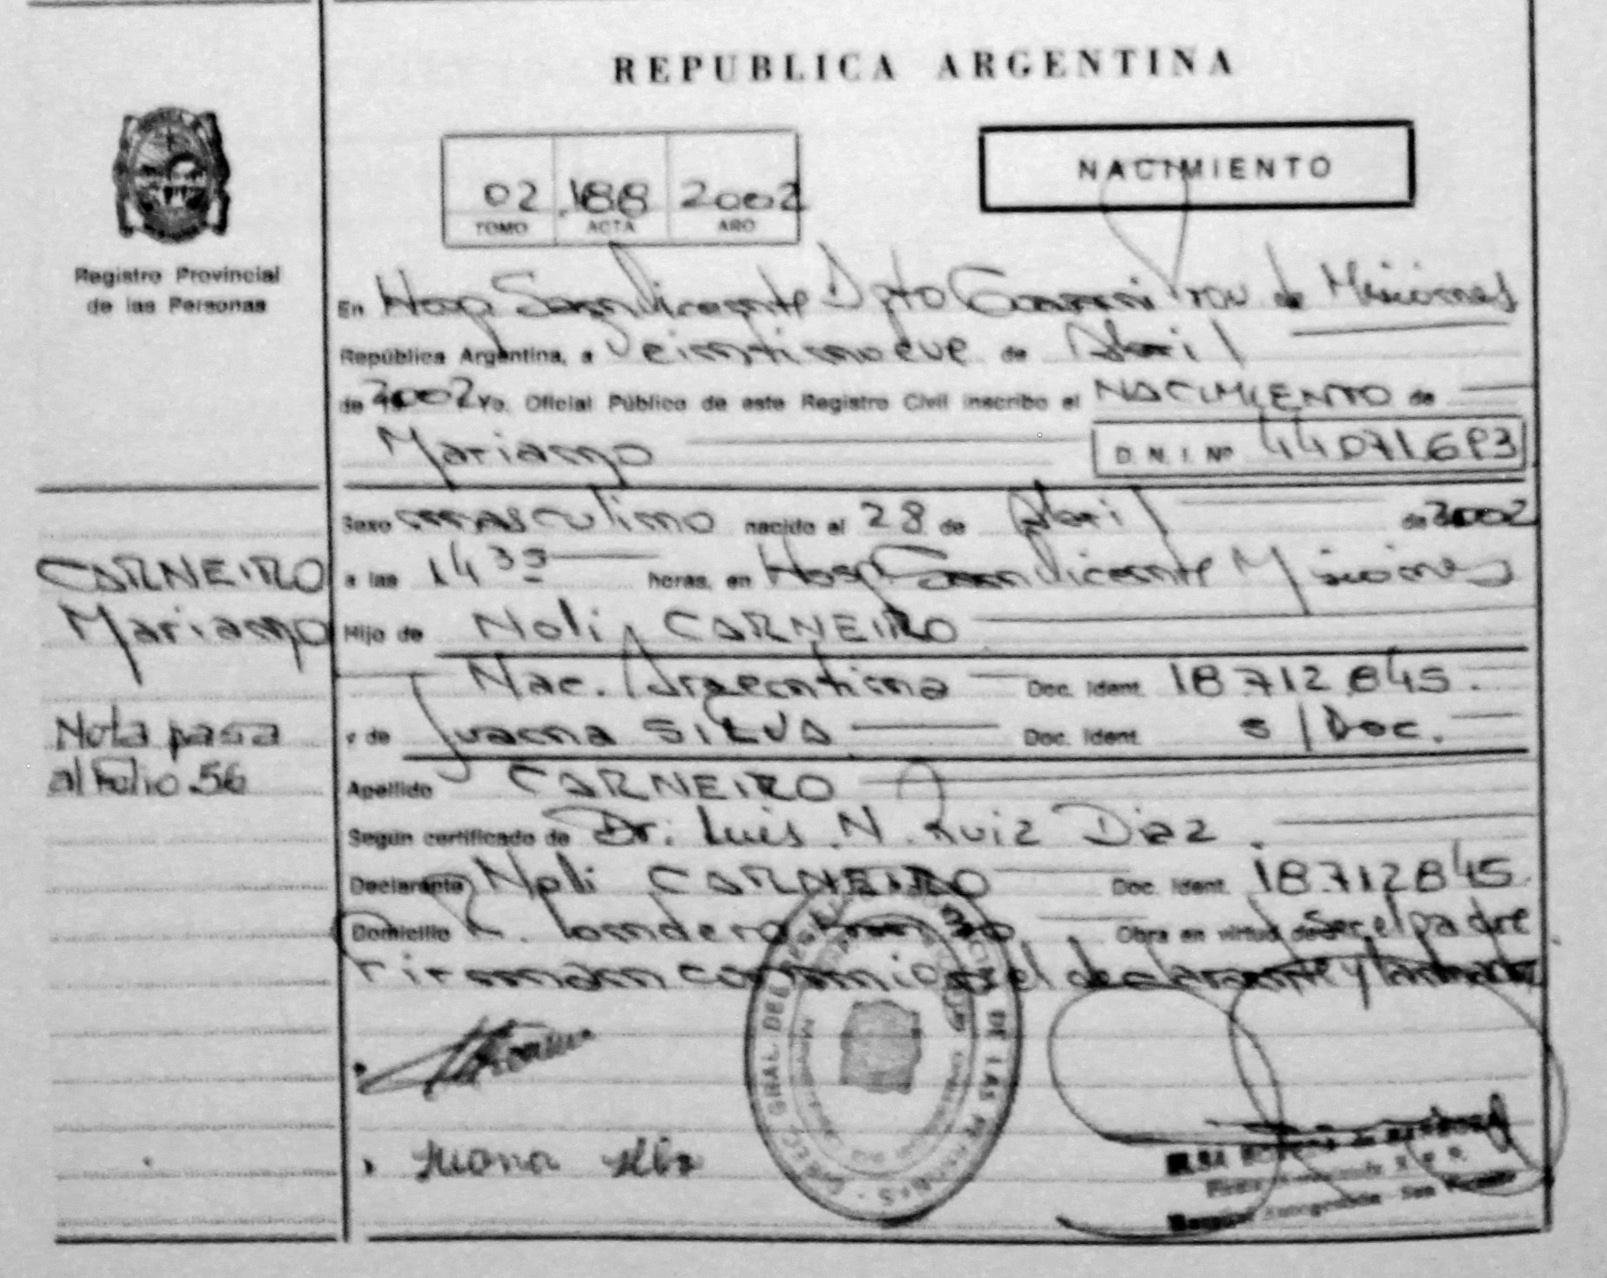 REPUBLICA ARGENTINA
NACIMIENTO
02 188 2002
TOMO ACTA AÑO
Registro Provincial
de las Personas
En Hosp San Vicente Dpto Guarani Prov de Misiones
República Argentina, a Veintinueve de Abril
de 2002 Yo. Oficial Público de este Registro Civil inscribo el NACIMIENTO de
Mariano
D. N. I. Nº 44.071.693
Sexo masculino nacido el 28 de Abril de 2002
CARNEIRO
Mariano
a las 14 35 horas. en Hosp San Vicente Misiones
Hijo de Noli CARNEIRO
Nac. Argentina Doc. Ident. 18.712.845.
y de Juana SILVA Doc. Ident. s/Doc.
Nota pasa
al Folio 56
Apellido CARNEIRO
Según certificado de Dr. Luis. N. Ruiz Diaz.
Declarante Noli CARNEIRO Doc. Ident. 18.712.845.
Domicilio Obra en virtud de ser el padre
Firman conmigo el declarante y la madre
Juana
DE LAS PERSONAS
San Vicente